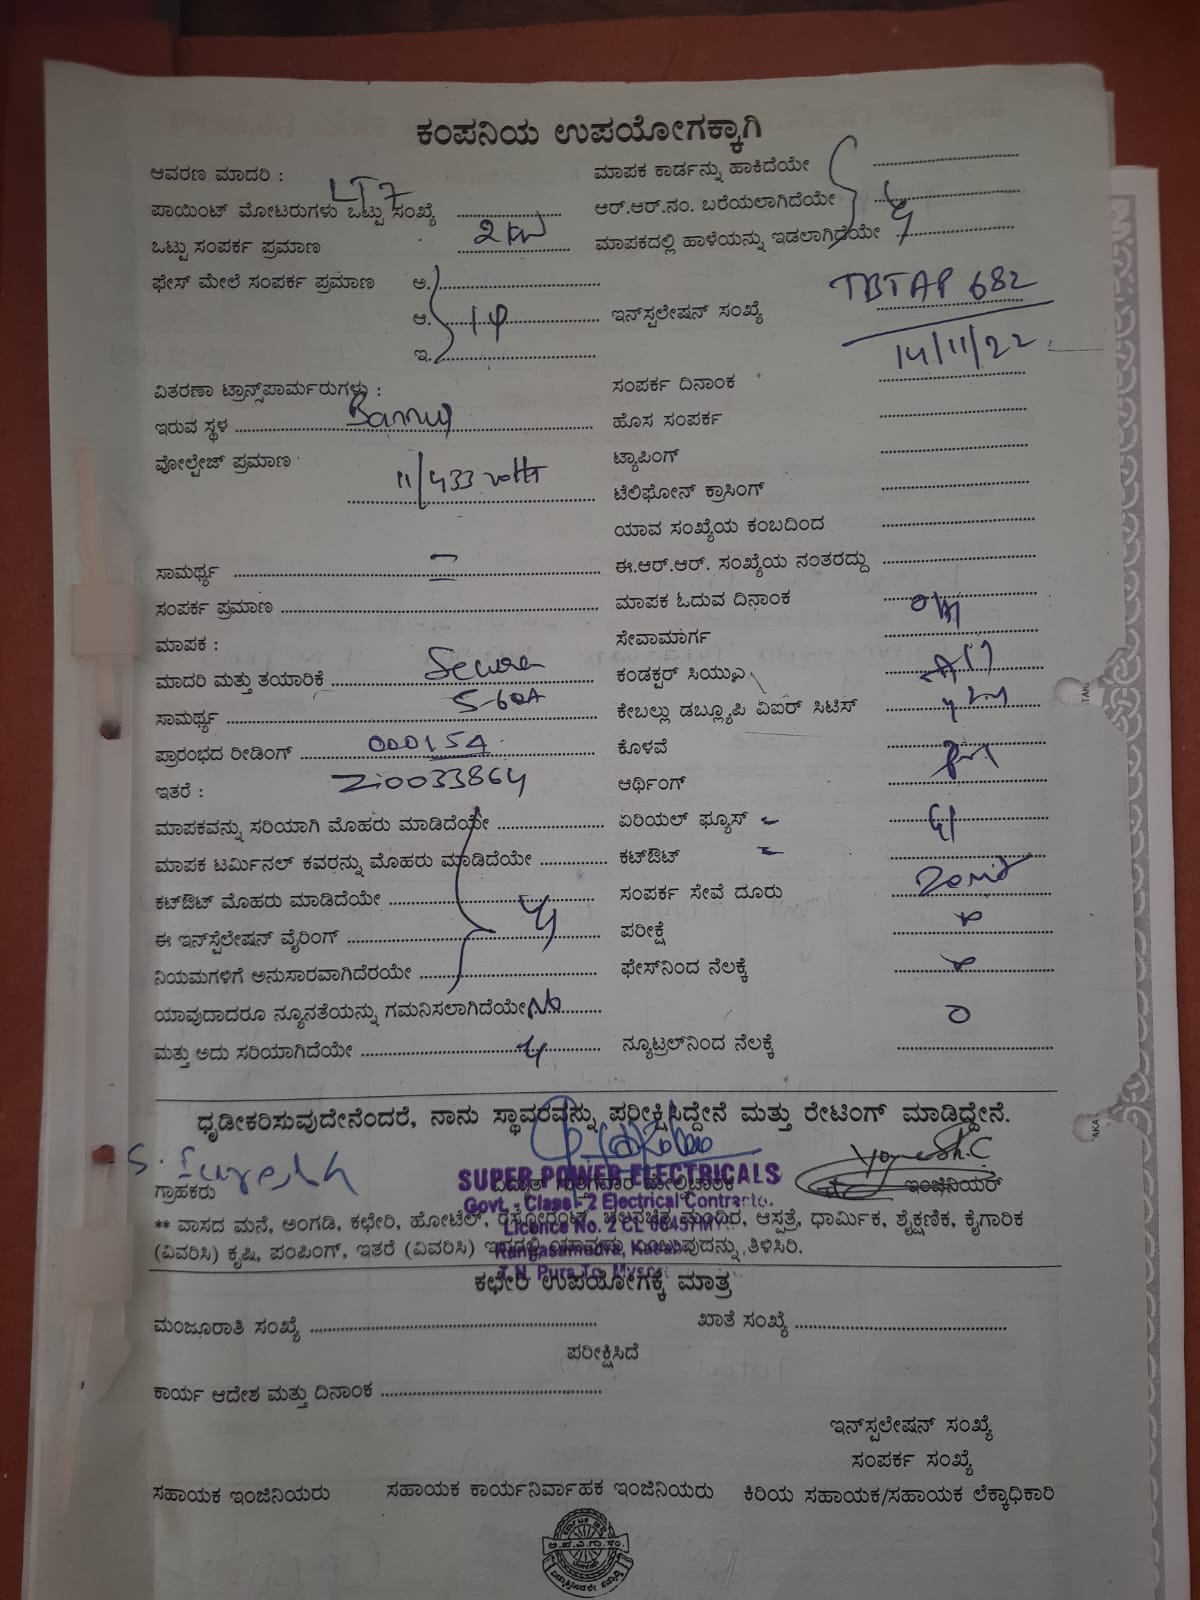 ಕಂಪನಿಯ ಉಪಯೋಗಕ್ಕಾಗಿ
ಆವರಣ ಮಾದರಿ : LT7
ಮಾಪಕ ಕಾರ್ಡನ್ನು ಹಾಕಿದೆಯೇ
ಪಾಯಿಂಟ್ ಮೋಟರುಗಳು ಒಟ್ಟು ಸಂಖ್ಯೆ
ಆರ್.ಆರ್.ನಂ. ಬರೆಯಲಾಗಿದೆಯೇ
ಒಟ್ಟು ಸಂಪರ್ಕ ಪ್ರಮಾಣ 2 KW
ಮಾಪಕದಲ್ಲಿ ಹಾಳೆಯನ್ನು ಇಡಲಾಗಿದೆಯೇ
ಫೇಸ್ ಮೇಲೆ ಸಂಪರ್ಕ ಪ್ರಮಾಣ ಅ.
ಆ. 1φ
ಇನ್‌ಸ್ಪಲೇಷನ್ ಸಂಖ್ಯೆ TBTAP 682
ಇ.
14/11/22
ವಿತರಣಾ ಟ್ರಾನ್ಸ್‌ಪಾರ್ಮರುಗಳು :
ಸಂಪರ್ಕ ದಿನಾಂಕ
ಇರುವ ಸ್ಥಳ
ಹೊಸ ಸಂಪರ್ಕ
ವೋಲ್ಟೇಜ್ ಪ್ರಮಾಣ 11/433 volts
ಟ್ಯಾಪಿಂಗ್
ಟೆಲಿಫೋನ್ ಕ್ರಾಸಿಂಗ್
ಯಾವ ಸಂಖ್ಯೆಯ ಕಂಬದಿಂದ
ಸಾಮರ್ಥ್ಯ
ಈ.ಆರ್.ಆರ್. ಸಂಖ್ಯೆಯ ನಂತರದ್ದು
ಸಂಪರ್ಕ ಪ್ರಮಾಣ
ಮಾಪಕ ಓದುವ ದಿನಾಂಕ
ಮಾಪಕ :
ಸೇವಾಮಾರ್ಗ
ಮಾದರಿ ಮತ್ತು ತಯಾರಿಕೆ Secure
ಕಂಡಕ್ಟರ್ ಸಿಯುಎ
ಸಾಮರ್ಥ್ಯ 5-60A
ಕೇಬಲ್ಲು ಡಬ್ಲ್ಯೂಪಿ ವಿಐರ್ ಸಿಟಿಸ್
ಪ್ರಾರಂಭದ ರೀಡಿಂಗ್
ಕೊಳವೆ
ಇತರೆ :
ಆರ್ಥಿಂಗ್
ಮಾಪಕವನ್ನು ಸರಿಯಾಗಿ ಮೊಹರು ಮಾಡಿದೆಯೇ
ಏರಿಯಲ್ ಫ್ಯೂಸ್
ಮಾಪಕ ಟರ್ಮಿನಲ್ ಕವರನ್ನು ಮೊಹರು ಮಾಡಿದೆಯೇ
ಕಟ್‌ಔಟ್
ಕಟ್‌ಔಟ್ ಮೊಹರು ಮಾಡಿದೆಯೇ
ಸಂಪರ್ಕ ಸೇವೆ ದೂರು
ಈ ಇನ್‌ಸ್ಪೆಲೇಷನ್ ವೈರಿಂಗ್
ಪರೀಕ್ಷೆ
ನಿಯಮಗಳಿಗೆ ಅನುಸಾರವಾಗಿದೆರಯೇ
ಫೇಸ್‌ನಿಂದ ನೆಲಕ್ಕೆ
ಯಾವುದಾದರೂ ನ್ಯೂನತೆಯನ್ನು ಗಮನಿಸಲಾಗಿದೆಯೇ No
ಮತ್ತು ಅದು ಸರಿಯಾಗಿದೆಯೇ
ನ್ಯೂಟ್ರಲ್‌ನಿಂದ ನೆಲಕ್ಕೆ
ಧೃಡೀಕರಿಸುವುದೇನೆಂದರೆ, ನಾನು ಸ್ಥಾವರವನ್ನು ಪರೀಕ್ಷಿಸಿದ್ದೇನೆ ಮತ್ತು ರೇಟಿಂಗ್ ಮಾಡಿದ್ದೇನೆ.
S. Suresh
Yogesh.C
ಗ್ರಾಹಕರು
ಇಂಜಿನಿಯರ್
SUPER POWER ELECTRICALS
Govt. - Class - 2 Electrical Contractor.
** ವಾಸದ ಮನೆ, ಅಂಗಡಿ, ಕಛೇರಿ, ಹೋಟೆಲ್, ರೆಸ್ಟೋರೆಂಟ್, ಚಲನಚಿತ್ರ ಮಂದಿರ, ಆಸ್ಪತ್ರೆ, ಧಾರ್ಮಿಕ, ಶೈಕ್ಷಣಿಕ, ಕೈಗಾರಿಕ
(ವಿವರಿಸಿ) ಕೃಷಿ, ಪಂಪಿಂಗ್, ಇತರೆ (ವಿವರಿಸಿ) ತಿಳಿಸಿರಿ.
ಕಛೇರಿ ಉಪಯೋಗಕ್ಕೆ ಮಾತ್ರ
ಮಂಜೂರಾತಿ ಸಂಖ್ಯೆ
ಖಾತೆ ಸಂಖ್ಯೆ
ಪರೀಕ್ಷಿಸಿದೆ
ಕಾರ್ಯ ಆದೇಶ ಮತ್ತು ದಿನಾಂಕ
ಇನ್‌ಸ್ಪಲೇಷನ್ ಸಂಖ್ಯೆ
ಸಂಪರ್ಕ ಸಂಖ್ಯೆ
ಸಹಾಯಕ ಇಂಜಿನಿಯರು
ಸಹಾಯಕ ಕಾರ್ಯನಿರ್ವಾಹಕ ಇಂಜಿನಿಯರು
ಕಿರಿಯ ಸಹಾಯಕ/ಸಹಾಯಕ ಲೆಕ್ಕಾಧಿಕಾರಿ